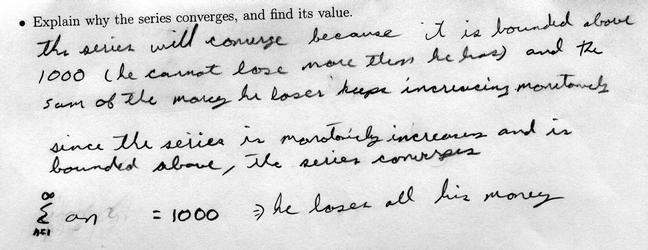 • Explain why the series converges, and find its value.
the series will converge because it is bounded above
1000 (he cannot lose more then he has) and the
sum of the money he loses keeps increasing monotonely
since the series is monotonicly increases and is
bounded above, the series converges
∞
Σ an = 1000 ⇒ he loses all his money
n=1